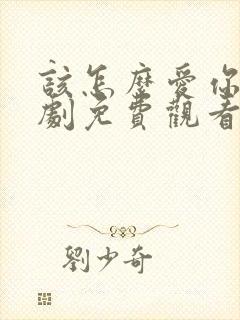 該怎麼愛你
劇免費觀看
劉少奇